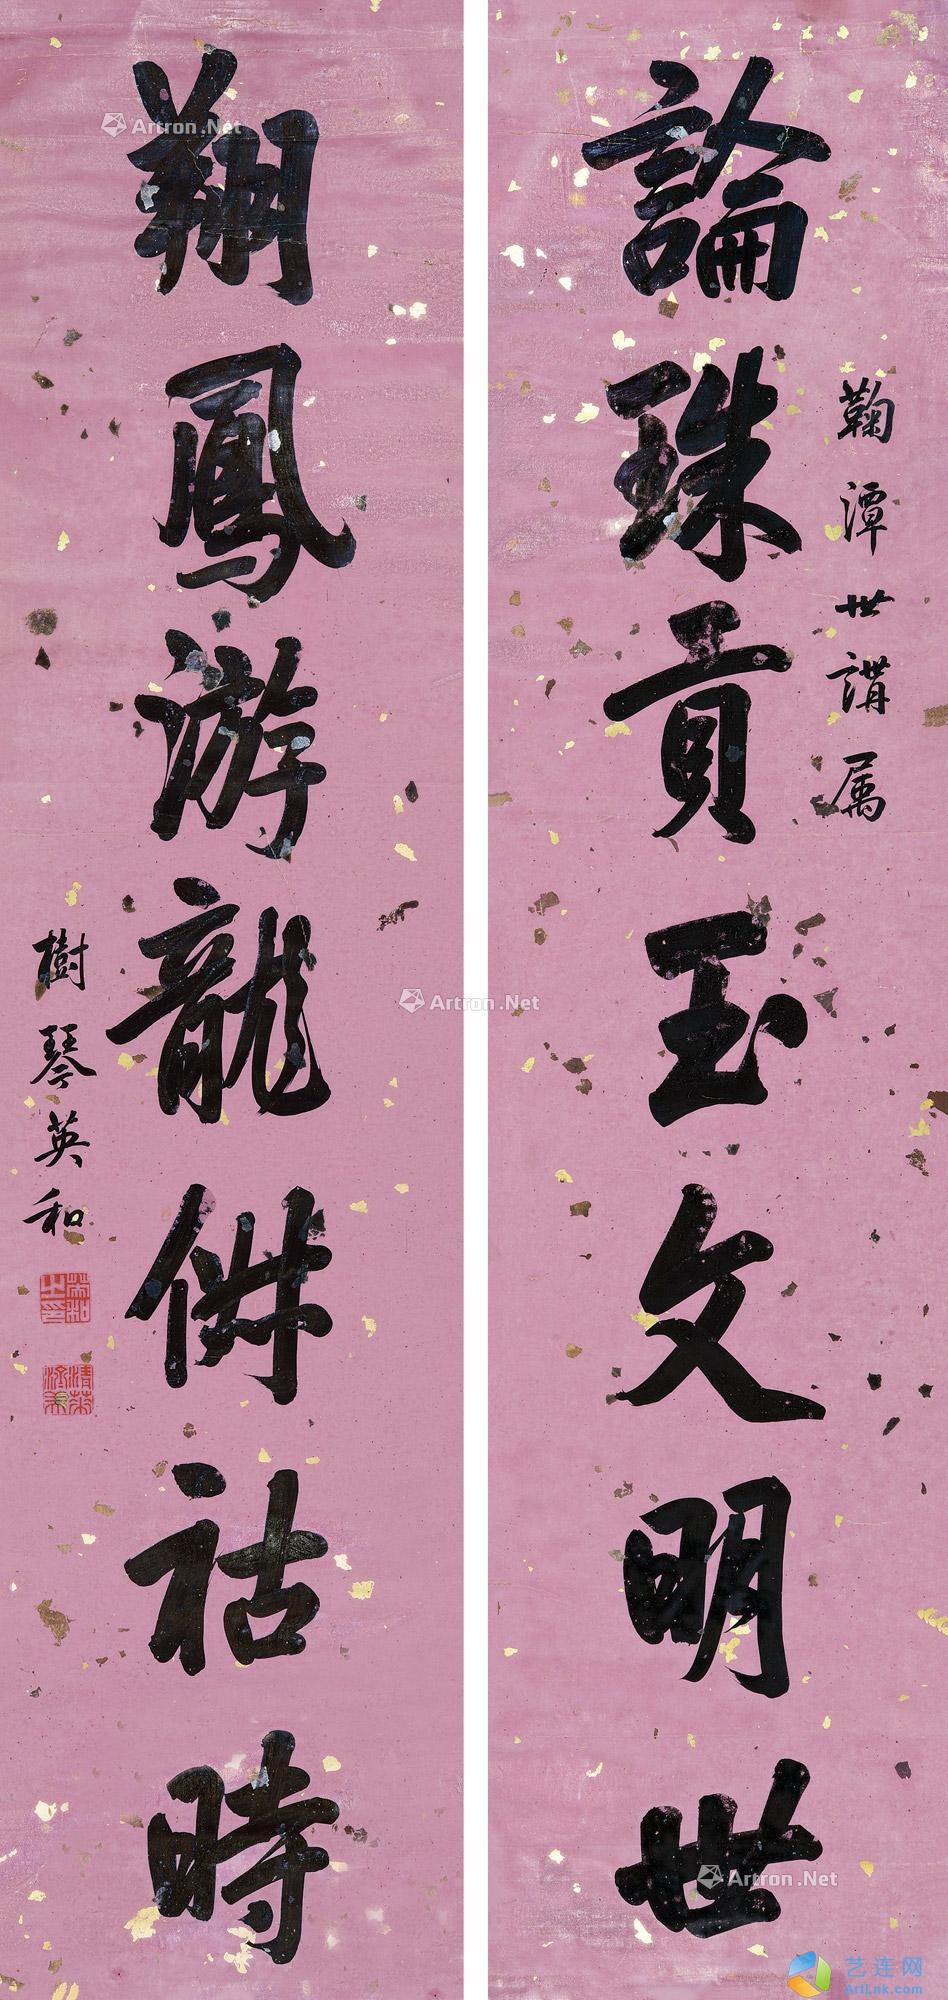 鞠潭世講属
論珠貢玉文明世
翔鳳游龍併祜時
樹琴英和
英和之印
Artron.Net
Artron.Net
Artron.Net
艺连网
ArtLnk.com